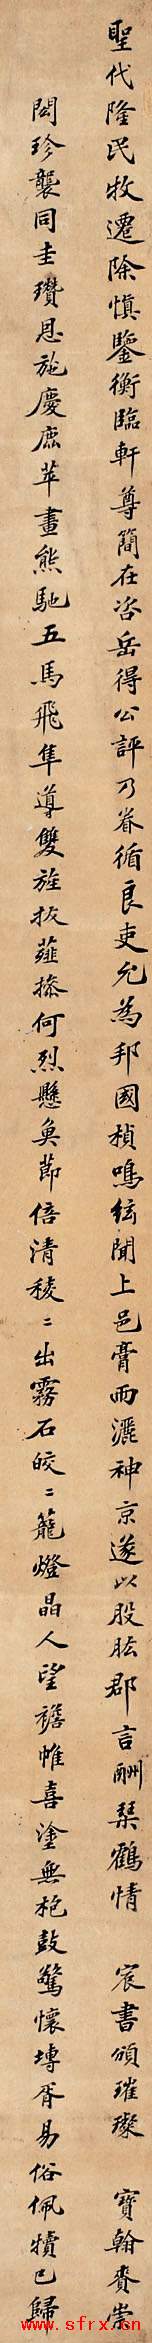 聖代隆民牧遷除慎鑒衡臨軒尊簡在咨岳得公評乃眷循良吏允為邦國楨鳴絃聞上邑膏雨灑神京遂以股肱郡言酬琹鶴情宸書頒璀璨寶翰賚崇
閎珍襲同圭瓚恩施慶鹿苹畫熊馳五馬飛隼導雙旌拔薤操何烈懸魚節倍清稜〻出霧石皎〻籠燈晶人望襜帷喜塗無枹鼓驚懷塼胥易俗佩犢已歸
www.sfrx.cn